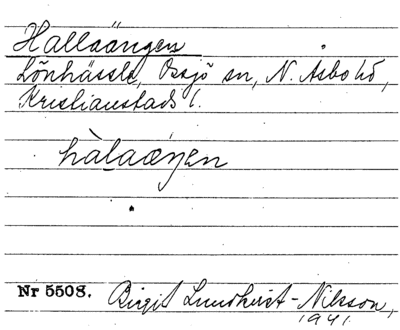 Hallaängen
Lönhässle, Össjö sn, N. Åsbo hd,
Kristianstads l.
hàlaæŋen
Nr 5508. Birgit Lundkvist-Nilsson,
1941.